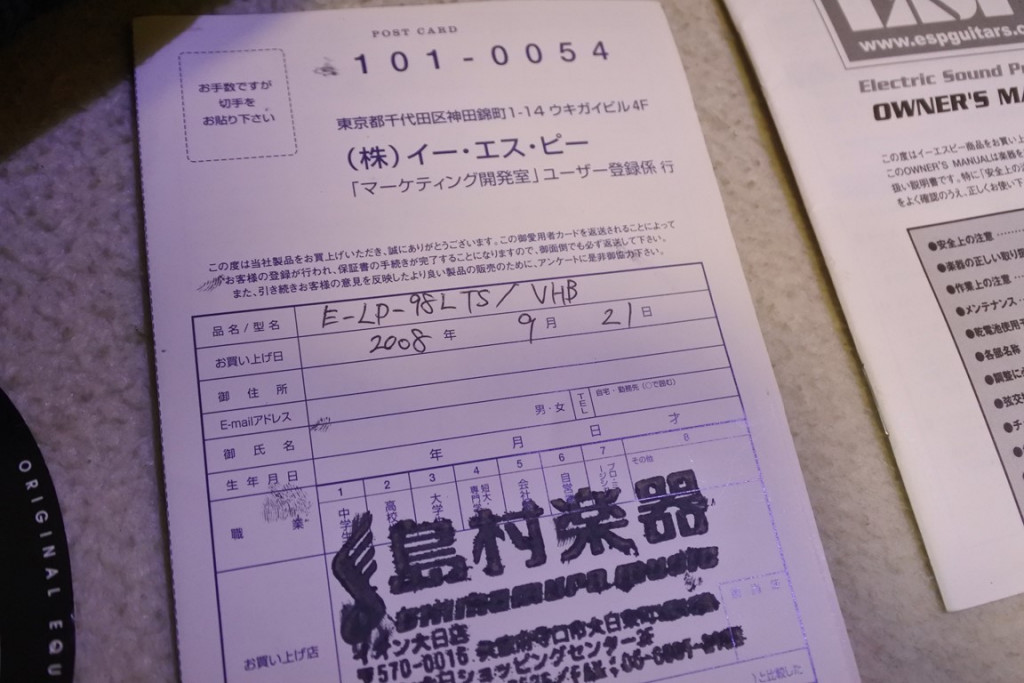 POST CARD
お手数ですが
切手を
お貼り下さい
101-0054
東京都千代田区神田錦町1-14 ウキガイビル4F
(株)イー・エス・ピー
「マーケティング開発室」ユーザー登録係 行
この度は当社製品をお買上げいただき、誠にありがとうございます。この御愛用者カードを返送されることによって
お客様の登録が行われ、保証書の手続きが完了することになりますので、御面倒でも必ず返送して下さい。
また、引き続きお客様の意見を反映したより良い製品の販売のために、アンケートに是非御協力下さい。
品名/型名 E-LP-98LTS/VHB
お買い上げ日 2008 年 9 月 21 日
御住所
E-mailアドレス TEL 自宅・勤務先(○で囲む)
御氏名 男・女
生年月日 年 月 日 才
職業 1 2 3 4 5 6 7 8
中学生 高校 大学 短大・専門 会社 自営 その他
お買い上げ店
島村楽器
shimamura music
イオン大日店
〒570-0016 大阪府守口市大日東町
ショッピングセンター
ORIGINAL EQU
www.espguitars.c
Electric Sound Pr
OWNER'S MA
この度はイーエスピー商品をお買い上
このOWNER'S MANUALは楽器を
扱い説明書です。特に「安全上の
をよく確認のうえ、正しくお使い下
●安全上の注意
●楽器の正しい取り扱
●作業上の注意
●メンテナンス
●乾電池使用
●各部名称
●調整に
●弦交
●チ